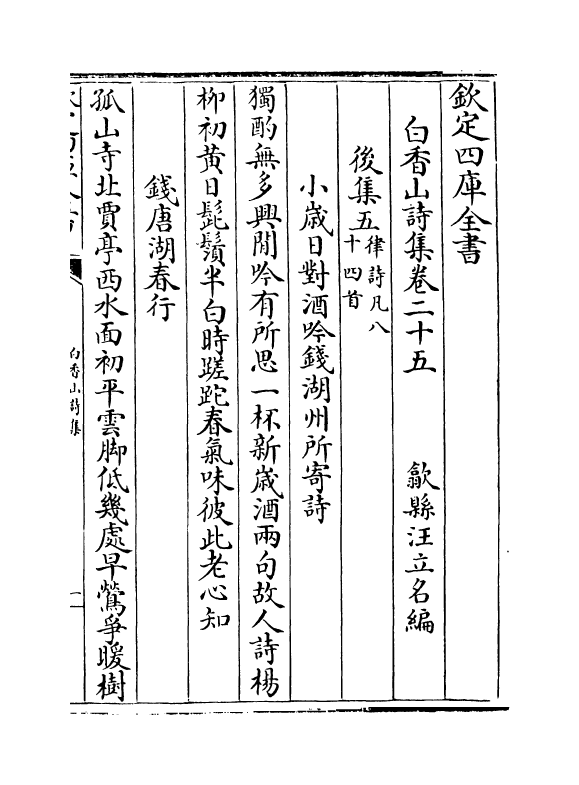 欽定四庫全書
白香山詩集卷二十五　　歙縣汪立名編
後集五律詩凡八
十四首
小歲日對酒吟錢湖州所寄詩
獨酌無多興閒吟有所思一杯新歲酒兩句故人詩楊
柳初黄日髭鬚半白時蹉跎春氣味彼此老心知
錢唐湖春行
孤山寺北賈亭西水面初平雲脚低幾處早鶯爭暖樹
白香山詩集
一